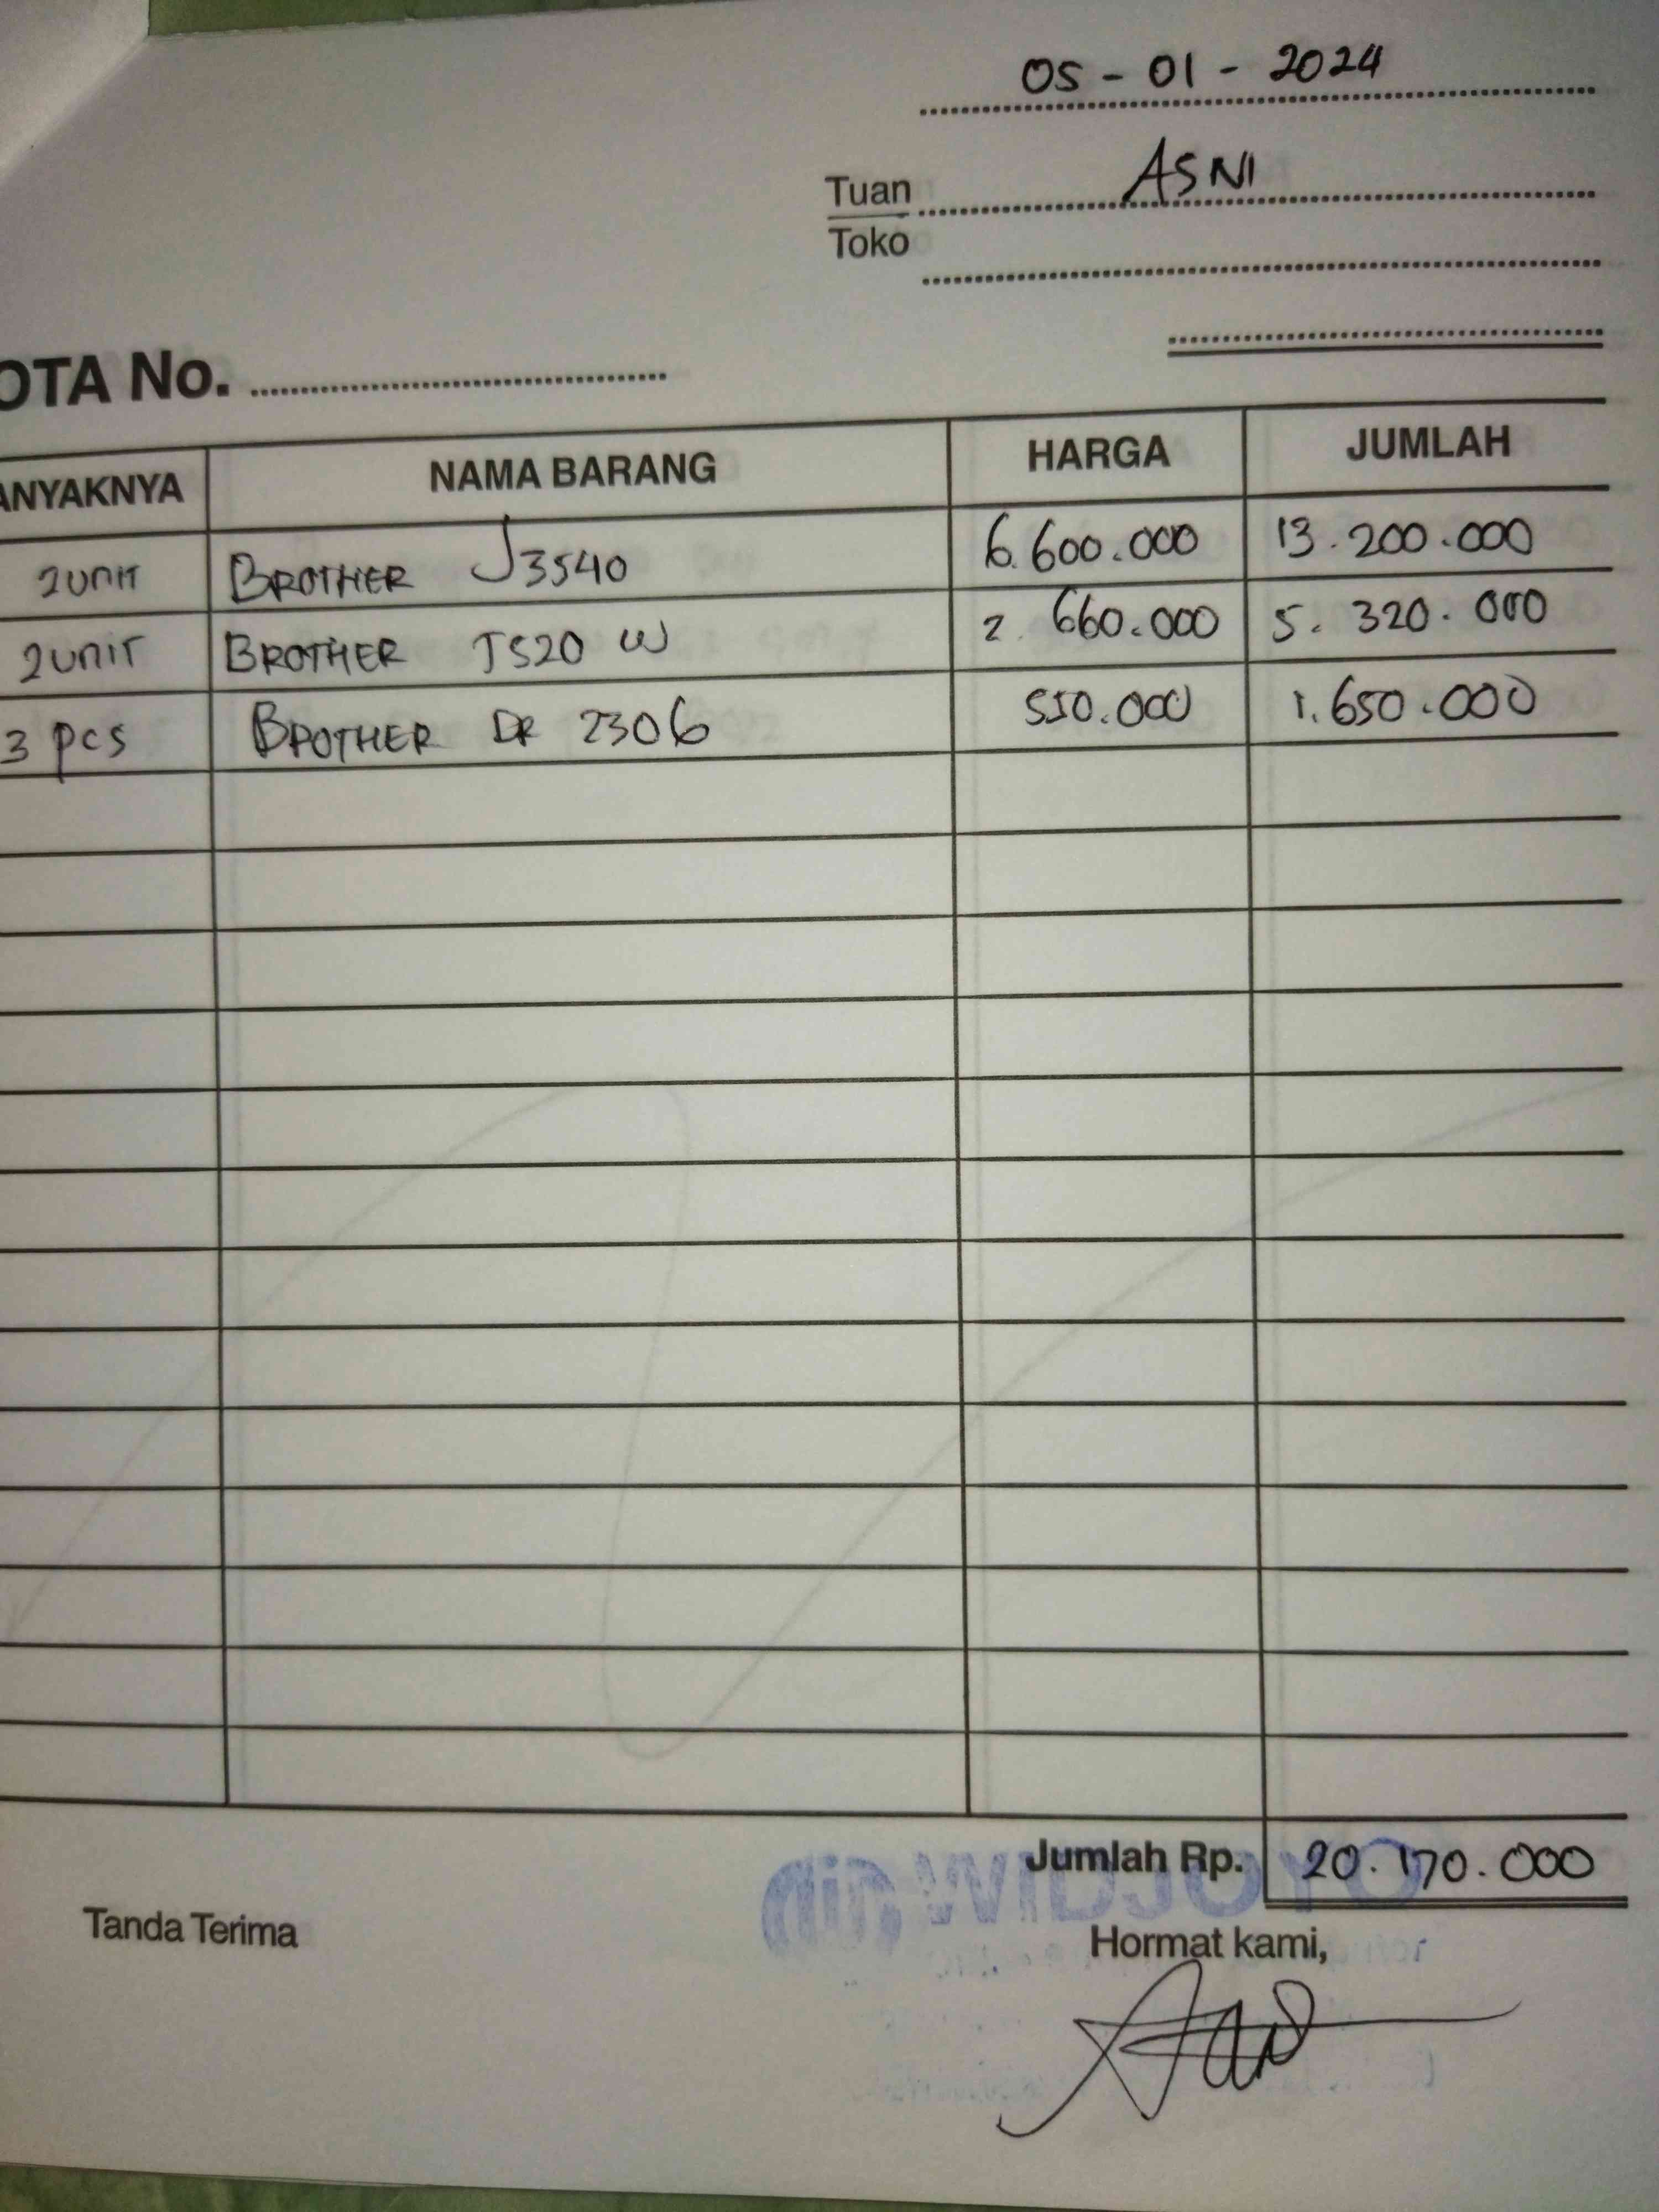 05 - 01 - 2024
Tuan ASNI
Toko
OTA No.
ANYAKNYA NAMA BARANG HARGA JUMLAH
2 UNIT BROTHER J3540 6.600.000 13.200.000
2 UNIT BROTHER T520 W 2.660.000 5.320.000
3 PCS BROTHER DR 2306 550.000 1.650.000
Jumlah Rp. 20.170.000
WIDJOYO
Tanda Terima Hormat kami,